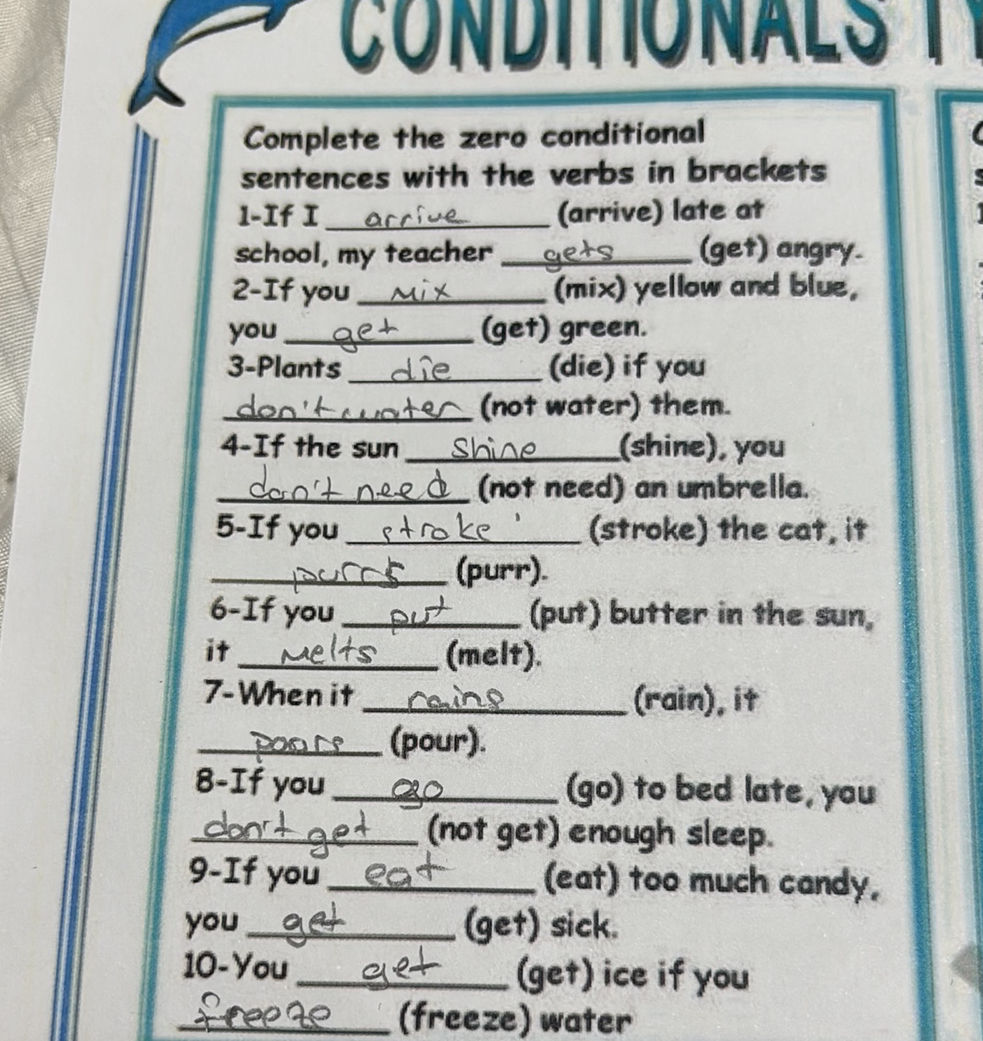 CONDITIONALS TY
Complete the zero conditional
sentences with the verbs in brackets
1-If I arrive (arrive) late at
school, my teacher gets (get) angry.
2-If you mix (mix) yellow and blue,
you get (get) green.
3-Plants die (die) if you
don't water (not water) them.
4-If the sun shine (shine), you
don't need (not need) an umbrella.
5-If you stroke (stroke) the cat, it
purrs (purr).
6-If you put (put) butter in the sun,
it melts (melt).
7-When it rains (rain), it
(pour).
8-If you go (go) to bed late, you
don't get (not get) enough sleep.
9-If you eat (eat) too much candy,
you get (get) sick.
10-You get (get) ice if you
freeze (freeze) water